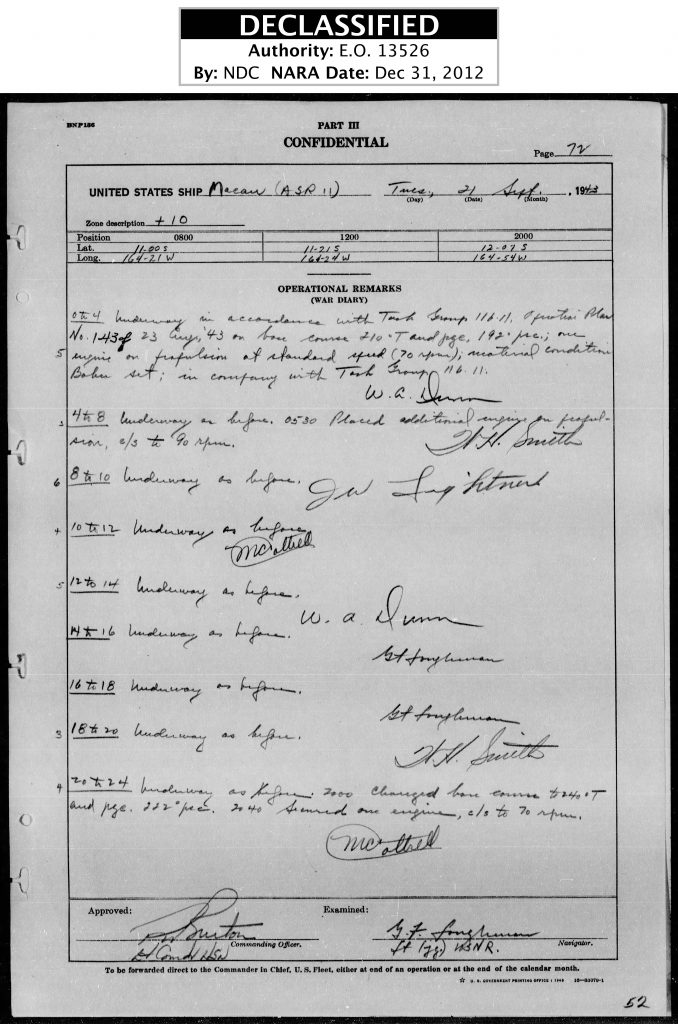 DECLASSIFIED
Authority: E.O. 13526
By: NDC NARA Date: Dec 31, 2012
BNP156
PART III
CONFIDENTIAL
Page 72
UNITED STATES SHIP Macaw (ASR 11) Tues, 21 Sept. , 1943
(Day) (Date) (Month)
Zone description +10
Position 0800 1200 2000
Lat. 11-00 S 11-21 S 12-07 S
Long. 164-21 W 164-24 W 164-54 W
OPERATIONAL REMARKS
(WAR DIARY)
0 to 4 Underway in accordance with Task Group 116.11. Operation Plan
No. 1-43 of 23 Aug, '43 on base course 210°T and pgc, 192° psc.; one
5 engine on propulsion at standard speed (70 rpm); material condition
Baker set; in company with Task Group 116.11.
W. A. Dunn
3 4 to 8 Underway as before. 0530 Placed additional engine on propul-
sion, c/s to 90 rpm.
W. H. Smith
6 8 to 10 Underway as before.
4 10 to 12 Underway as before
5 12 to 14 Underway as before.
W. A. Dunn
14 to 16 Underway as before.
16 to 18 Underway as before.
3 18 to 20 Underway as before.
W. H. Smith
4 20 to 24 Underway as before. 2000 Changed base course to 240°T
and pgc. 222° psc. 2040 Secured one engine, c/s to 70 rpm.
Approved: Examined:
Burton G.F.
Commanding Officer. Navigator.
Lt Comdr USN Lt (jg) USNR.
To be forwarded direct to the Commander in Chief, U. S. Fleet, either at end of an operation or at the end of the calendar month.
☆ U. S. GOVERNMENT PRINTING OFFICE :
52